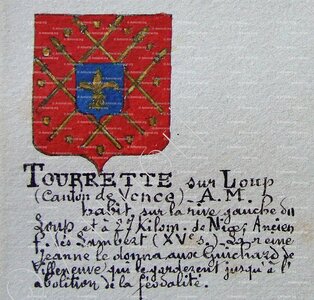 TOURRETTE sur Loup
(Canton de Vence). A.M.
batit sur la rive gauche du
Loup et à 27 Kilom. de Nice. Ancien
f. des Lambert (XVes.). La reine
Jeanne le donna aux Guichard de
Villeneuve qui le garderent jusqu'à l'
abolition de la féodalité.